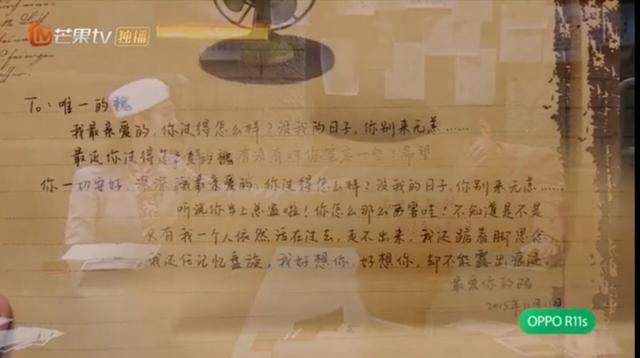 芒果tv 独播
To：唯一的魏
我最亲爱的，你过得怎么样？没我的日子，你别来无恙……
最近你过得怎么样
你一切安好，我最亲爱的，你过得怎么样？没我的日子，你别来无恙……
听说你当上总监啦！你怎么那么厉害哇！不知道是不是
只有我一个人依然活在过去，走不出来，我还踮着脚思念，
我还任记忆盘旋，我好想你，好想你，却不能露出痕迹。
最爱你的
2015年11月
OPPO R11s